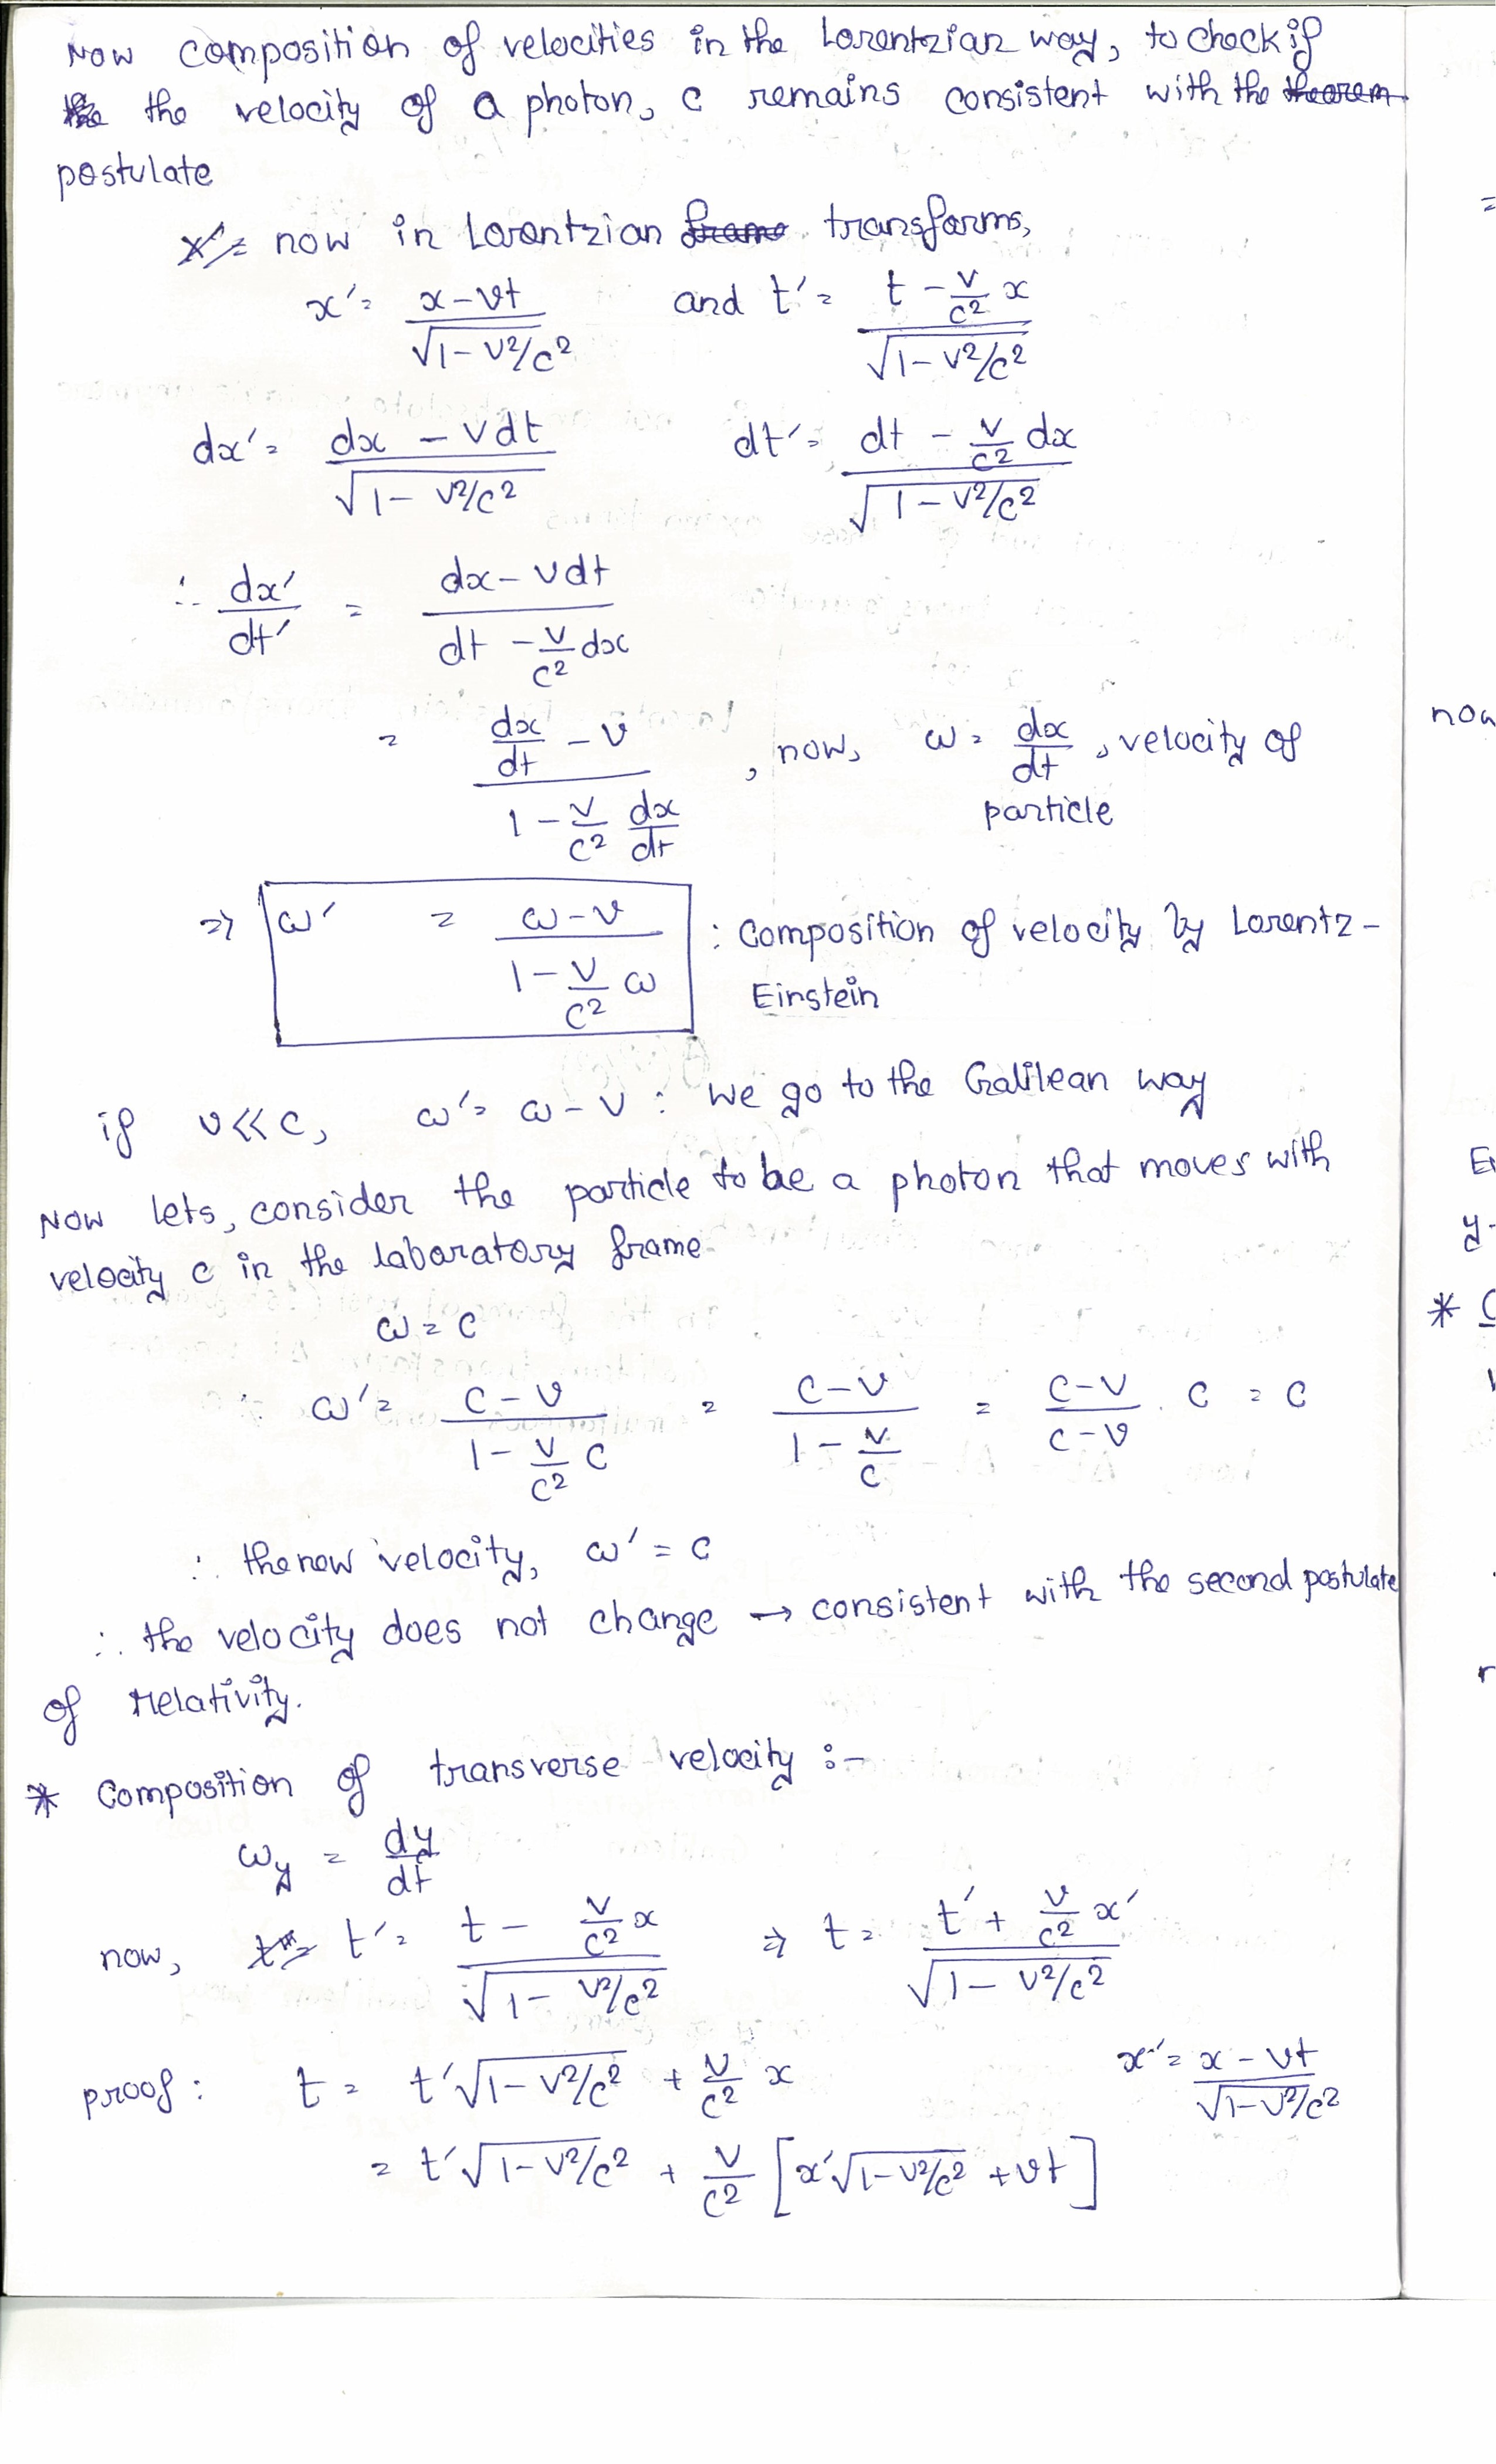 Now composition of velocities in the Lorentzian way, to check if
the the velocity of a photon, c remains consistent with the theorem
postulate
x'= now in Lorentzian frame transforms,
x' = (x - vt) / √(1 - v²/c²) and t' = (t - v/c² x) / √(1 - v²/c²)
dx' = (dx - vdt) / √(1 - v²/c²) dt' = (dt - v/c² dx) / √(1 - v²/c²)
∴ dx'/dt' = (dx - vdt) / (dt - v/c² dx)
= (dx/dt - v) / (1 - v/c² dx/dt) , now, ω = dx/dt, velocity of
particle
⇒ ω' = (ω - v) / (1 - v/c² ω) : Composition of velocity by Lorentz-
Einstein
if v << c, ω' = ω - v : we go to the Galilean way
Now lets, consider the particle to be a photon that moves with
velocity c in the laboratory frame
ω = c
∴ ω' = (c - v) / (1 - v/c² c) = (c - v) / (1 - v/c) = (c - v)/(c - v) . c = c
∴ the new velocity, ω' = c
∴ the velocity does not change → consistent with the second postulate
of relativity.
* Composition of transverse velocity :-
ω_y = dy/dt
now, t' = (t - v/c² x) / √(1 - v²/c²) ⇒ t = (t' + v/c² x') / √(1 - v²/c²)
proof : t = t'√(1 - v²/c²) + v/c² x x' = (x - vt) / √(1 - v²/c²)
= t'√(1 - v²/c²) + v/c² [x'√(1 - v²/c²) + vt]
=
now
y-
*